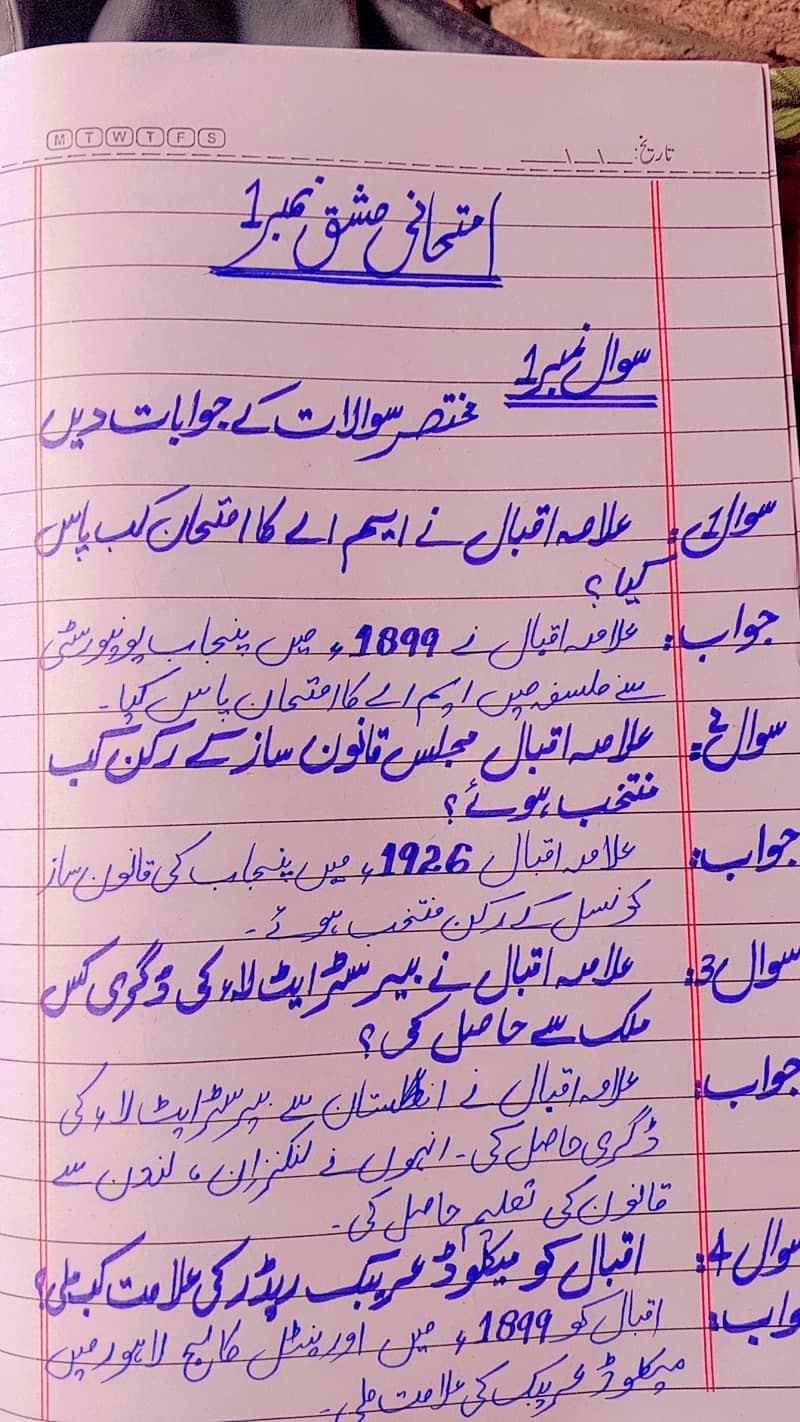 M T W T F S
تاریخ: __\__\__
امتحانی مشق نمبر 1
سوال نمبر 1
مختصر سوالات کے جوابات دیں
سوال 1: علامہ اقبال نے ایم اے کا امتحان کب پاس
کیا؟
جواب: علامہ اقبال نے 1899ء میں پنجاب یونیورسٹی
سے فلسفہ میں ایم اے کا امتحان پاس کیا۔
سوال 2: علامہ اقبال مجلس قانون ساز کے رکن کب
منتخب ہوئے؟
جواب: علامہ اقبال 1926ء میں پنجاب کی قانون ساز
کونسل کے رکن منتخب ہوئے۔
سوال 3: علامہ اقبال نے بیرسٹر ایٹ لاء کی ڈگری کس
ملک سے حاصل کی؟
جواب: علامہ اقبال نے انگلستان سے بیرسٹر ایٹ لاء کی
ڈگری حاصل کی۔ انہوں نے لنکنزان، لندن سے
قانون کی تعلیم حاصل کی۔
سوال 4: اقبال کو میکلوڈ عریبک ریڈر کی علامت کب ملی؟
جواب: اقبال کو 1899ء میں اورینٹل کالج لاہور میں
میکلوڈ عریبک کی علامت ملی۔